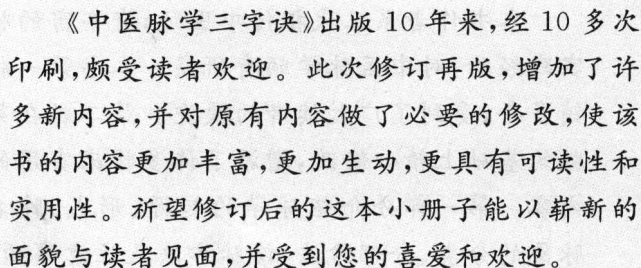 《中医脉学三字诀》出版 10 年来,经 10 多次
印刷,颇受读者欢迎。此次修订再版,增加了许
多新内容,并对原有内容做了必要的修改,使该
书的内容更加丰富,更加生动,更具有可读性和
实用性。祈望修订后的这本小册子能以崭新的
面貌与读者见面,并受到您的喜爱和欢迎。